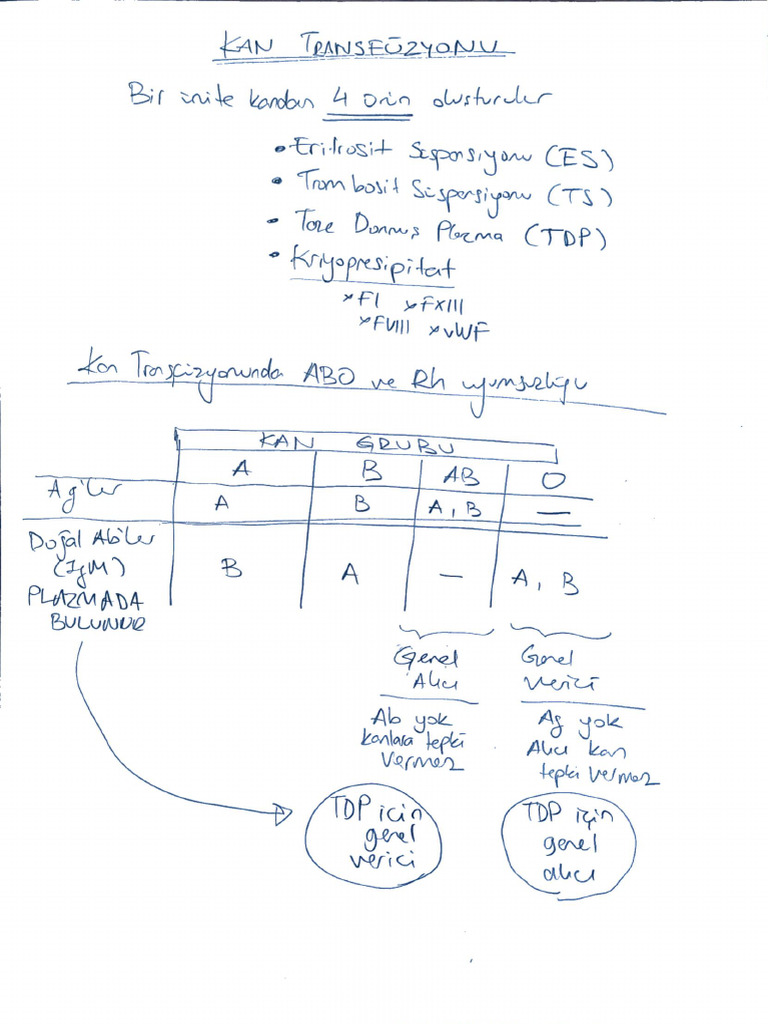 KAN TRANSFÜZYONU
Bir ünite kandan 4 ürün oluşturulur
• Eritrosit Süspansiyonu (ES)
• Trombosit Süspansiyonu (TS)
• Taze Donmuş Plazma (TDP)
• Kriyopresipitat
× FI × FXIII
× FVIII × vWF
Kan Transfüzyonunda ABO ve Rh uyumsuzluğu
KAN GRUBU
A B AB O
Ag'ler A B A, B —
Doğal Ab'ler
(IgM)
PLAZMADA
BULUNUR
B A — A, B
Genel
Alıcı
Genel
Verici
Ab yok
kanlara tepki
vermez
Ag yok
Alıcı kan
tepki vermez
TDP için
genel
verici
TDP için
genel
alıcı